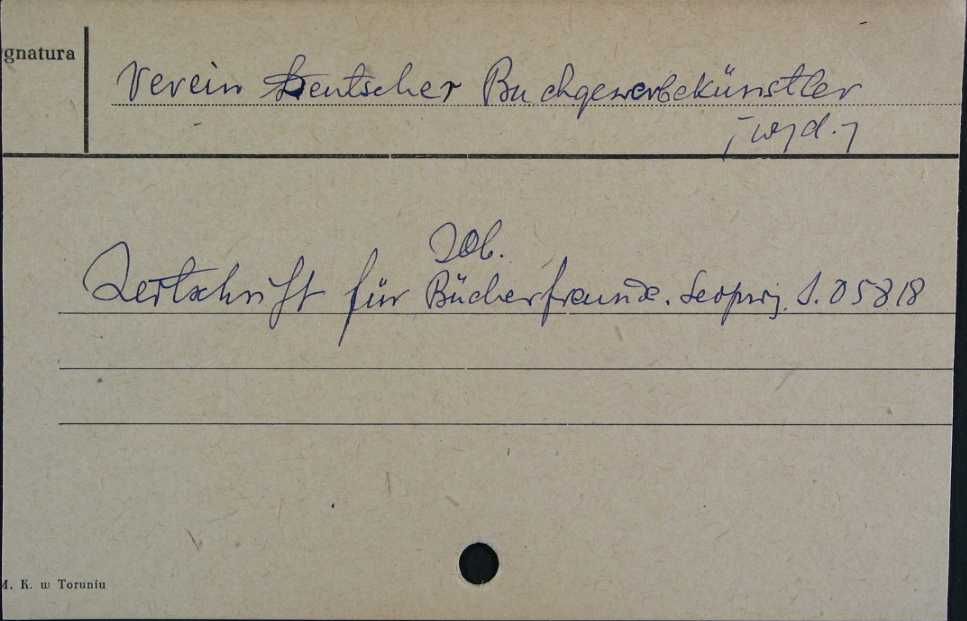 ygnatura
Verein Deutscher Buchgewerbekünstler
[wyd.]
Zob.
Zeitschrift für Bücherfreunde. Leipzig. S. 05818
M. K. w Toruniu